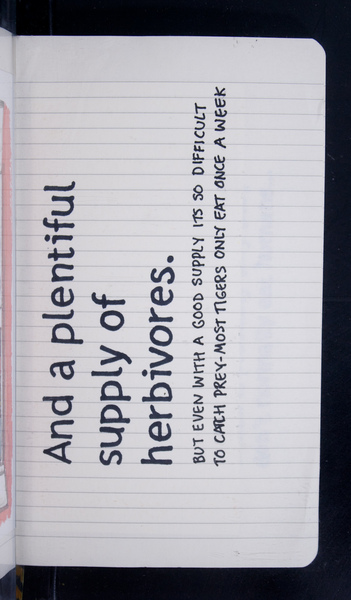 And a plentiful
supply of
herbivores.
BUT EVEN WITH A GOOD SUPPLY ITS SO DIFFICULT
TO CATCH PREY-MOST TIGERS ONLY EAT ONCE A WEEK